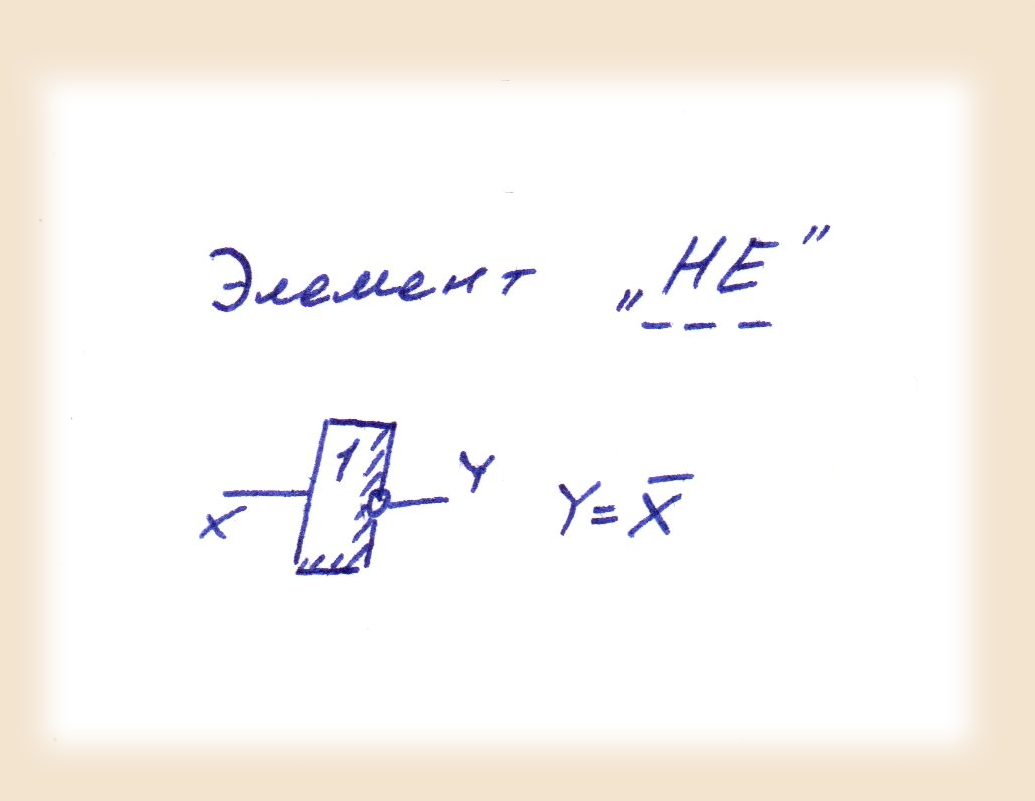 Элемент „НЕ”
1
X
Y
Y = X̅